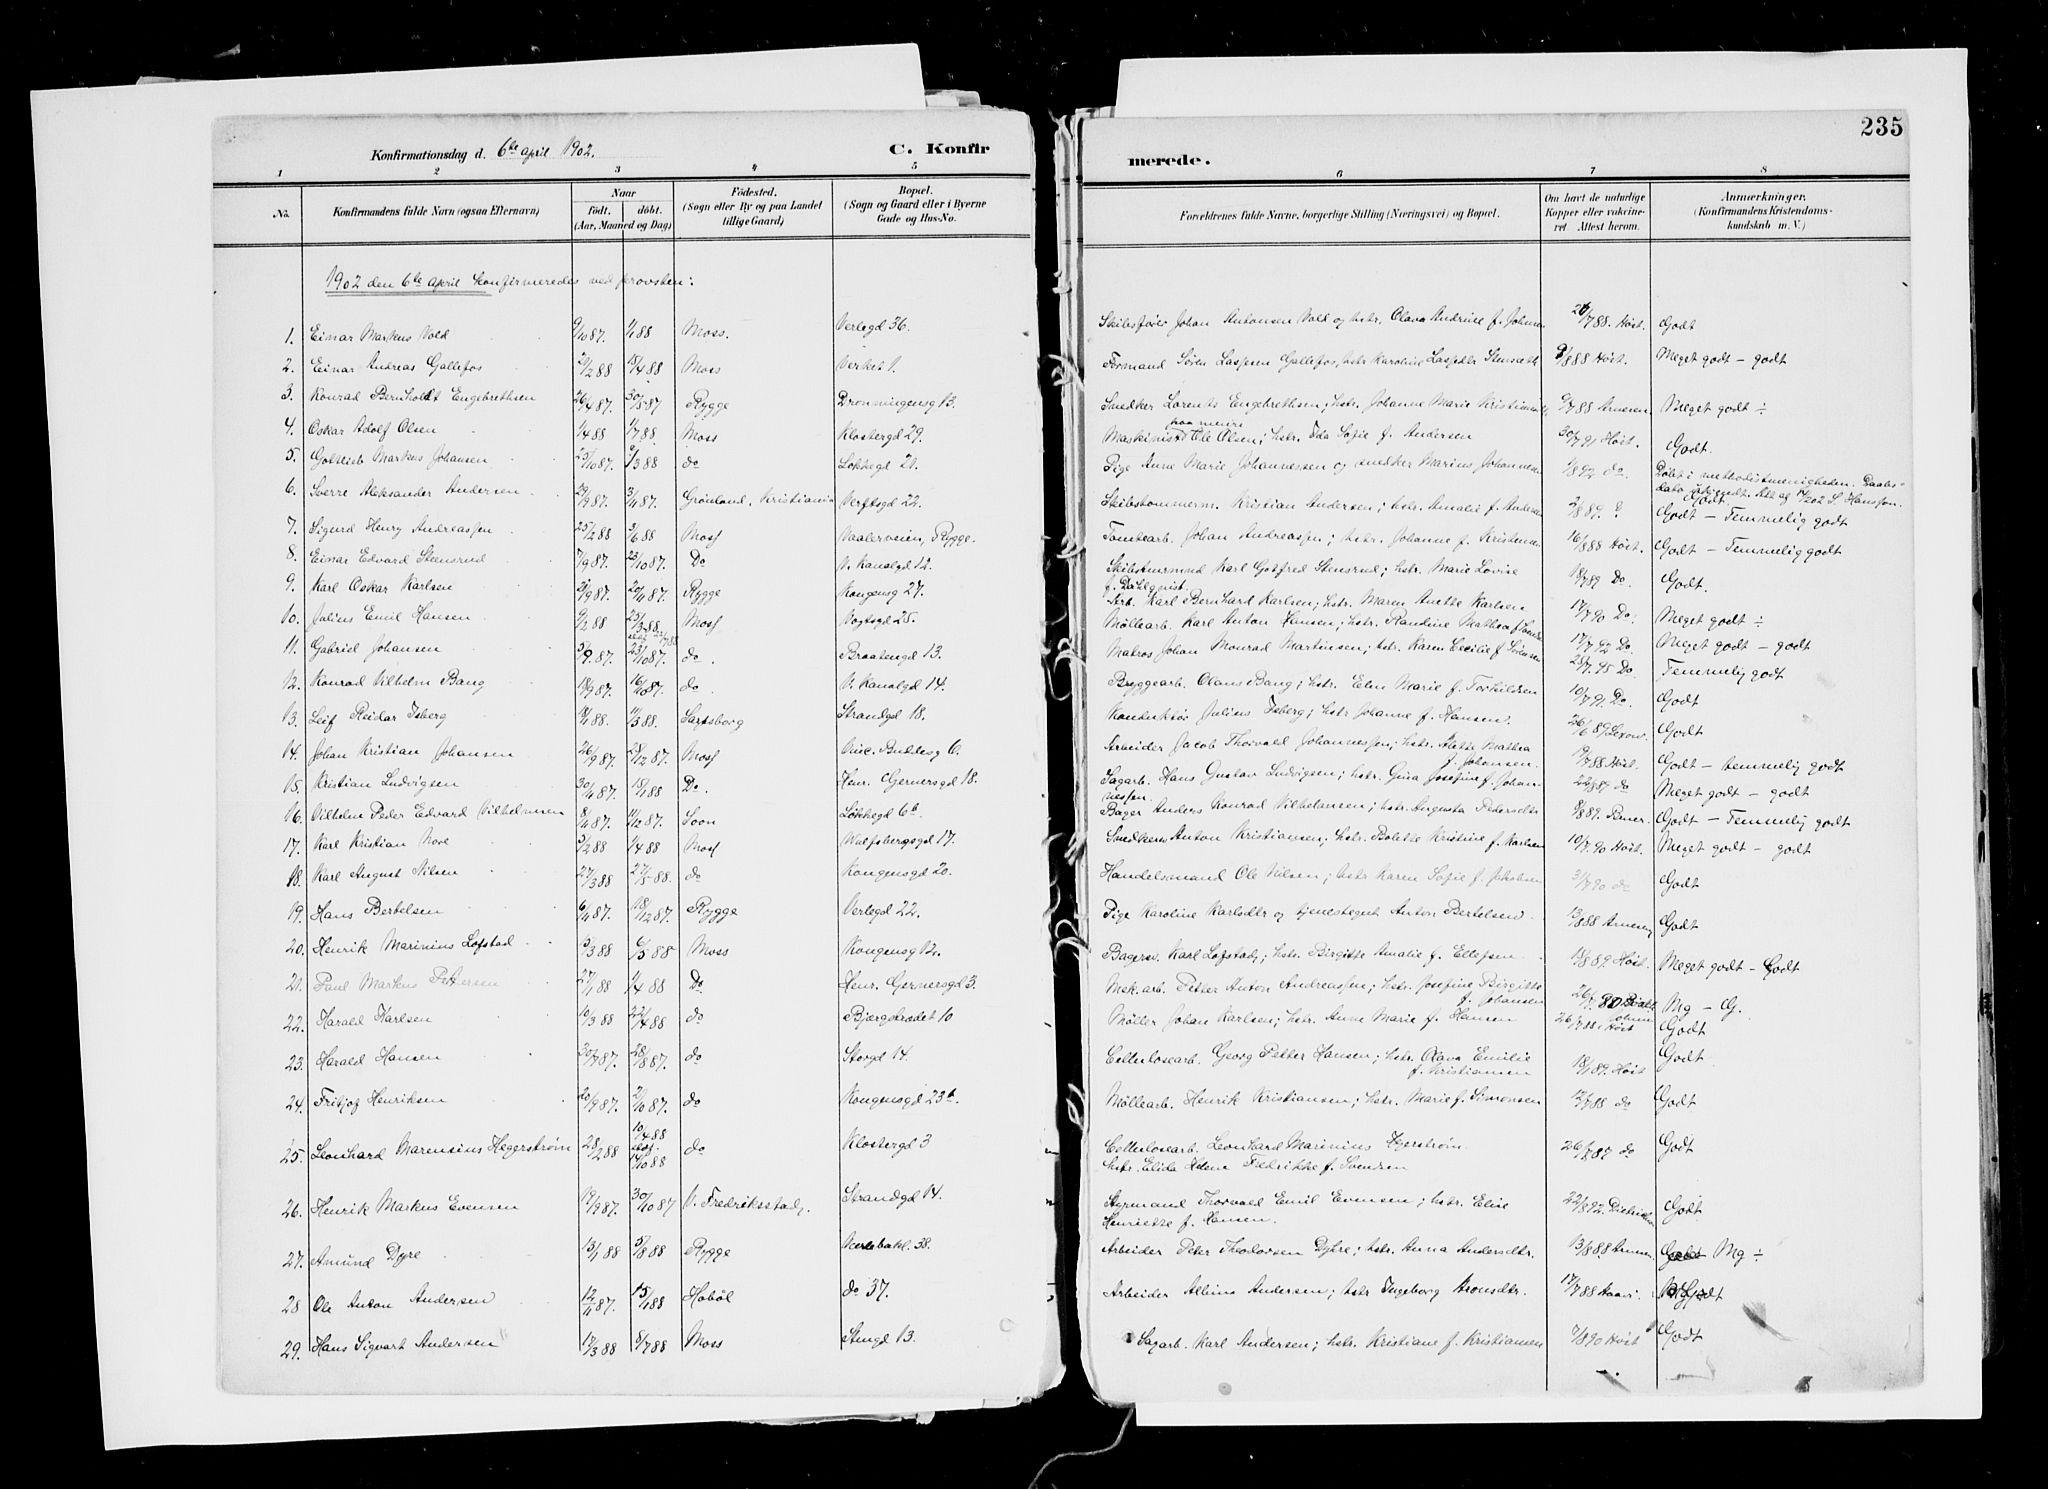 235
Konfirmationsdag d. 6te april 1902. C. Konfir
merede.
1 2 3 4 5 6 7 8
No. Konfirmandens fulde Navn (ogsaa Efternavn)
Naar født. døbt. (Aar, Maaned og Dag)
Fødested. (Sogn eller By og paa Landet tillige Gaard)
Bopæl. (Sogn og Gaard eller i Byerne Gade og Hus-No.
Forældrenes fulde Navne, borgerlige Stilling (Næringsvei) og Bopæl.
Om havt de naturlige Kopper eller vakcineret. Attest herom.
Anmærkninger. (Konfirmandens Kristendomskundskab m. V.)
1902 den 6te april konfirmeredes ved provsten:
1. Einar Markus Vold 9/10 87. 1/1 88 Moss. Verlegd 36. Skibsfører Johan Antonsen Vold og hstr. Olava Andrine f. Høst. Godt
2. Einar Andreas Gallefos 18/4 88 Moss Verket 1. Formand Søren Gallefos, hstr. Karoline 88 Høst. Meget godt – godt
3. Konrad Bernholdt Engebrethsen 26/4 87. 30/5 87 Rygge Dronningensg 13. Snedker Lorents Engebrethsen; hstr. Johanne Marie 88 Arnesen Meget godt ÷
4. Oskar Adolf Olsen 1/4 88 1/7 88. Moss Klostergd 29. Maskinist Ole Olsen; hstr. Ida Sofie f. Andersen 30/7 91 Høst. Godt.
5. Gottlieb Markus Johansen 25/10 87. 88 do Løkkegd 21. Pige Anne Marie Johannessen og snedker Marius 92 do Døbt i methodistmenigheden.
6. Sverre Aleksander Andersen 29/9 87. 87. Grønland, Kristiania Verftsgd 22. Skibstømmerm. Kristian Andersen; hstr. Amalie f. Andersen 89. Godt – Temmelig godt
7. Sigurd Henry Andreassen 25/2 88 3/6 88 Moss Vaalerveien, Rygge. Tomtearb. Johan Andreassen; hstr. Johanne f. Kristensen 16/8 88 Høst. Godt – Temmelig godt
8. Einar Edvard Stensrud 7/9 87. 23/10 87. Do V. Kanalgd 12. Skibsturmand Karl Gotfred Stensrud; hstr. Marie Lovise f. Dahlqvist. Do Godt.
9. Karl Oskar Karlsen 87. 20/11 87. Rygge Kongensg 27. Arb. Karl Bernhard Karlsen; hstr. Maren Anette Karlsen 17/7 90 Do. Meget godt ÷
10. Julius Emil Hansen 9/2 88 25/3 88. Moss Vogtsgd 25. Møllearb. Karl Anton Hansen; hstr. Randine Mathea 17/7 92 Do. Meget godt – godt
11. Gabriel Johansen 5/9 87. 23/10 87. do. Braatengd 13. Matros Johan Monrad Martinsen; hstr. Karen Cecilie f. Sørensen 95 Do Temmelig godt
12. Konrad Vilhelm Bang 18/9 87. 16/10 87. do. V. Kanalgd 14. Bryggearb. Olaus Bang; hstr. Elen Marie f. Torkildsen 10/7 91. Do. Godt
13. Leif Reidar Isberg 88. 11/3 88. Sarpsborg Strandgd 18. Konduktør Julius Isberg; hstr Johanne f. Hansen. 26/6 89 Godt
14. Johan Kristian Johansen 26/9 87. 25/12 87. Moss Chr. Buddesg 6. Arbeider Jacob Thorvald Johannessen; hstr. Mathea f. Johansen. 19/7 88 Høst. Godt – temmelig godt
15. Kristian Ludvigsen 30/11 87. 18/1 88 Do. Henr. Gernersgd 18. Sagarb. Hans Gustav Ludvigsen; hstr. Gina Josefine f. Johannessen. 22/8 87 do Meget godt – godt
16. Vilhelm Peder Edvard Vilhelmsen 8/11 87. 11/12 87. Soon Løkkegd 6b. Bager Anders Konrad Vilhelmsen; hstr. Augusta Pedersdtr 89. Godt – Temmelig godt
17. Karl Kristian Moe 5/2 88 1/4 88 Moss Wulfsbergsgd 17. Snedkersv. Anton Kristiansen; hstr. Bolette Kristine f. Karlsen 10/7 90 Høst. Meget godt – godt
18. Karl August Nilsen 27/3 88 27/5 88. do Kongensgd 20. Handelsmand Ole Nilsen; hstr Karen Sofie f. Jakobsen 31/7 90 do Godt
19. Hans Bertelsen 6/11 87. 18/12 87. Rygge Verlegd 22. Pige Karoline Karlsdtr og tjenestegut Anton Bertelsen. 13/8 88 Arnesen Godt
20. Henrik Marinius Løfstad 5/3 88 6/5 88 Moss Kongensg 12. Bagersv. Karl Løfstad; hstr. Birgitte Amalie f. Ellefsen 15/8 89. Høst. Meget godt – Godt
21. Paul Markus Pettersen 27/1 88 1/4 88 Do Henr. Gernersgd 3. Mek. arb. Petter Anton Andreassen; hstr. Josefine Birgitte f. Johansen Mg – G.
22. Harald Karlsen 10/3 88 22/4 88 do Bjergstrædet 10 Møller Johan Karlsen; hstr. Anne Marie f. Hansen 26/7 88 Høst Godt
23. Harald Hansen 30/7 87. 28/8 87. do Storgd 14. Cellulosearb. Georg Petter Hansen; hstr. Olava Emilie f. Kristiansen 18/7 89. Høst Godt
24. Fritjof Henriksen 20/9 87. 2/10 87. do Kongensgd 23b. Møllearb. Henrik Kristiansen; hstr. Marie f. Simonsen 12/7 88 do Godt
25. Leonhard Marensius Hegerstrøm 28/2 88 10/4 88 14/10 88 do Klostergd 3 Cellulosearb. Leonhard Marinius Hgerstrøm. hstr. Elida Helene Fredrikke f. Svendsen 87 do Godt
26. Henrik Markus Evensen 19/9 87. 30/10 87 V. Fredriksstad. Strandgd 14. Styrmand Thorvald Emil Evensen; hstr. Elise Henriette f. Hansen. 22/8 92. Godt.
27. Amund Dyre 13/1 88 5/8 88 Rygge Værlebakl. 38. Arbeider Peter Theodorsen Dyhre; hstr. Anna Andersdtr. 13/8 88 Arnesen Mg ÷
28 Ole Anton Andersen 12/11 87. 15/1 88 Hobøl do 37. Arbeider Albinus Andersen; hstr Ingeborg Aronsdtr. 17/7 88 Godt
29. Hans Sigvart Andersen 17/3 88 8/7 88 Moss Stengd 13. Sagarb. Karl Andersen; hstr. Kristiane f. Kristiansen 7/8 90 Høst Godt